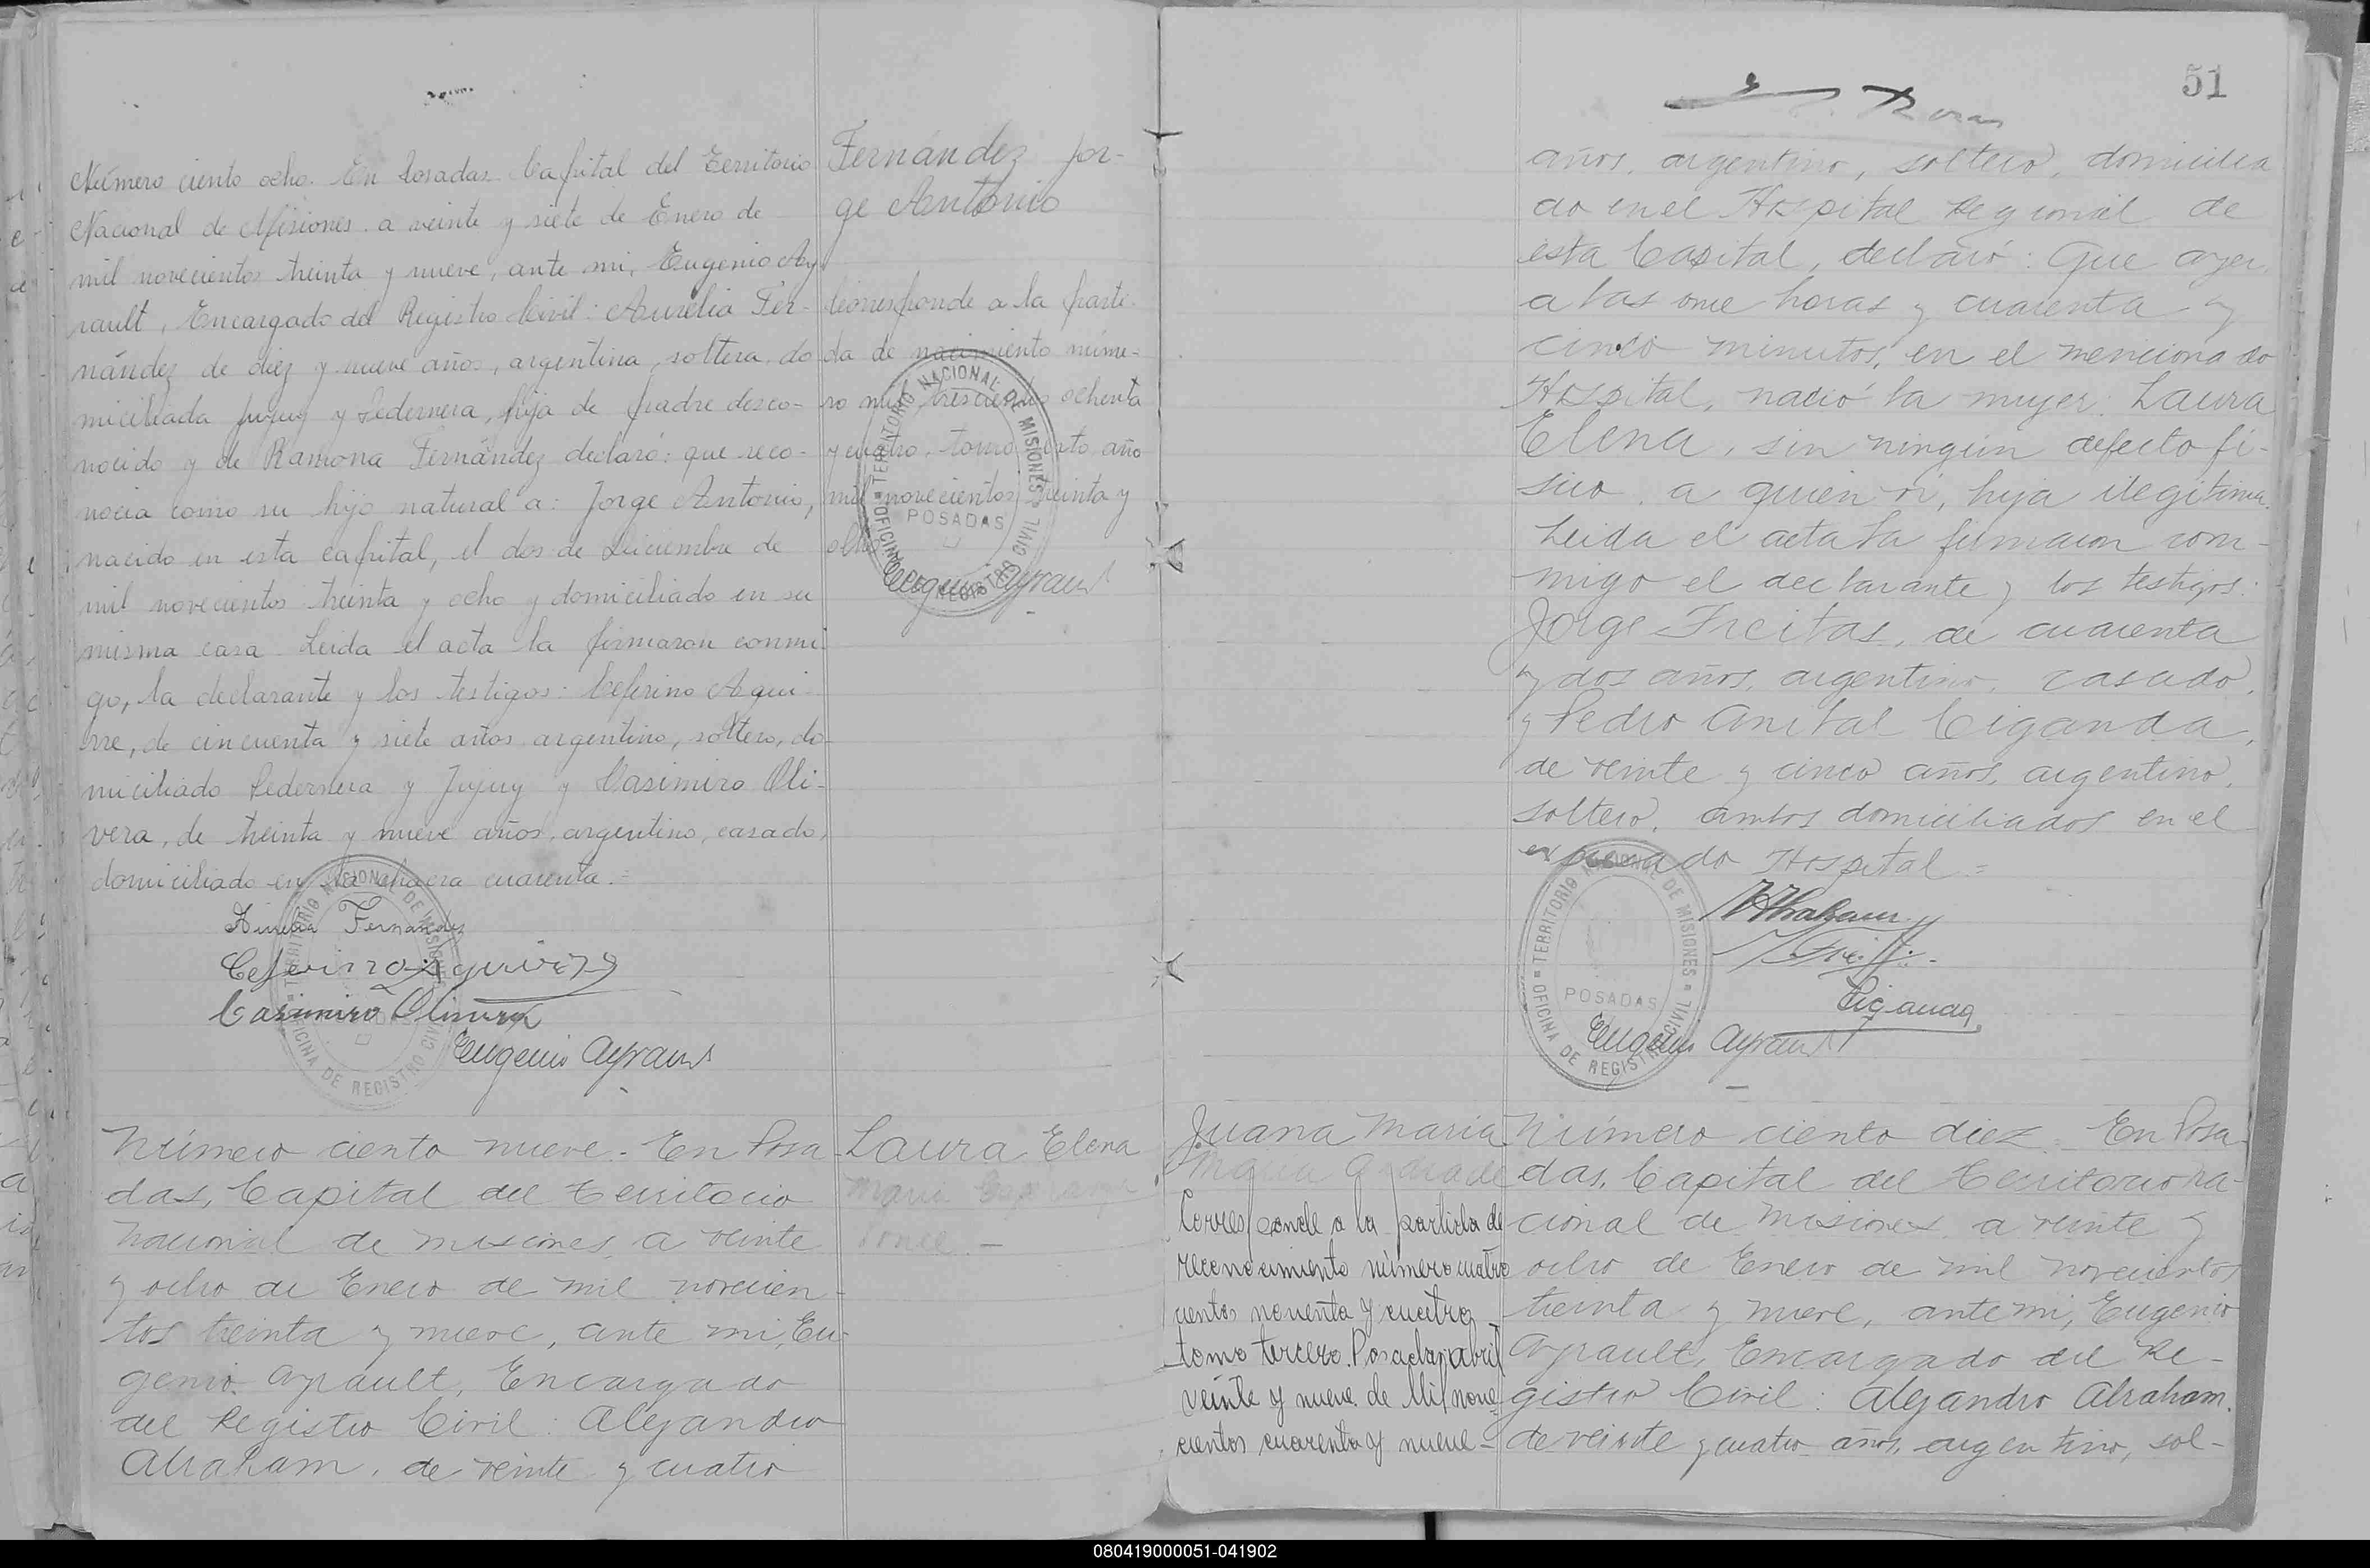 Número ciento ocho. En Posadas Capital del Territorio
Nacional de Misiones. a veinte y siete de Enero de
mil novecientos treinta y nueve, ante mi, Eugenio Ay
rault, Encargado del Registro Civil: Aurelia Fer-
nández de diez y nueve años, argentina, soltera, do
miciliada Jujuy y Pedernera, hija de padre desco-
nocido y de Ramona Fernández declaró: que reco-
nocia como su hijo natural a: Jorge Antonio,
nacido en esta capital, el dos de Diciembre de
mil novecientos treinta y ocho y domiciliado en su
misma casa. Leida el acta la firmaron conmi
go, la declarante y los testigos: Ceferino Agui-
rre, de cincuenta y siete años argentino, soltero, do
miciliado Pedernera y Jujuy y Casimiro Oli-
vera, de treinta y nueve años, argentino, casado,
domiciliado en la chacra cuarenta.=
Aurelia Fernandez
Ceferino Aguirre
Casimiro Olivera
Eugenio Ayrault
TERRITORIO NACIONAL DE MISIONES
OFICINA DE REGISTRO CIVIL
Fernández Jor-
ge Antonio
Corresponde a la parti-
da de nacimiento núme-
ro mil trescientos ochenta
y cuatro, tomo año
mil novecientos treinta y
ocho
Eugenio Ayrault
TERRITORIO NACIONAL DE MISIONES
POSADAS
OFICINA DE REGISTRO CIVIL
Número ciento nueve. En Posa-
das, Capital del Territorio
Nacional de Misiones, a veinte
y ocho de Enero de mil novecien-
tos treinta y nueve, ante mi, Eu-
genio Ayrault, Encargado
del Registro Civil: Alejandro
Abraham, de veinte y cuatro
Laura Elena
Maria
Ponce.-
51
años, argentino, soltero, domicilia
do en el Hospital Regional de
esta Capital, declaró: Que ayer
a las once horas y cuarenta y
cinco minutos, en el menciona do
Hospital, nació la mujer: Laura
Elena, sin ningún defecto fi-
sico, a quien vi, hija ilegitima.
Leida el acta la firmaron con-
migo el declarante y los testigos:
Jorge Freitas, de cuarenta
y dos años, argentino, casado,
y Pedro Anibal Ciganda,
de veinte y cinco años, argentino,
soltero, ambos domiciliados en el
expresado Hospital=
Abraham
Ciganda
Eugenio Ayrault
TERRITORIO NACIONAL DE MISIONES
POSADAS
OFICINA DE REGISTRO CIVIL
Juana Maria
Maria Andrade
Corresponde a la partida de
reconocimiento número cuatro
cientos noventa y cuatro
tomo tercero. Posadas, abril
veinte y nueve de Mil nove-
cientos cuarenta y nueve-
Número ciento diez. En Posa-
das, Capital del Territorio Na-
cional de Misiones, a veinte y
ocho de Enero de mil novecientos
treinta y nueve, ante mi, Eugenio
Ayrault, Encargado del Re-
gistro Civil: Alejandro Abraham,
de veinte y cuatro años, argentino, sol-
080419000051-041902